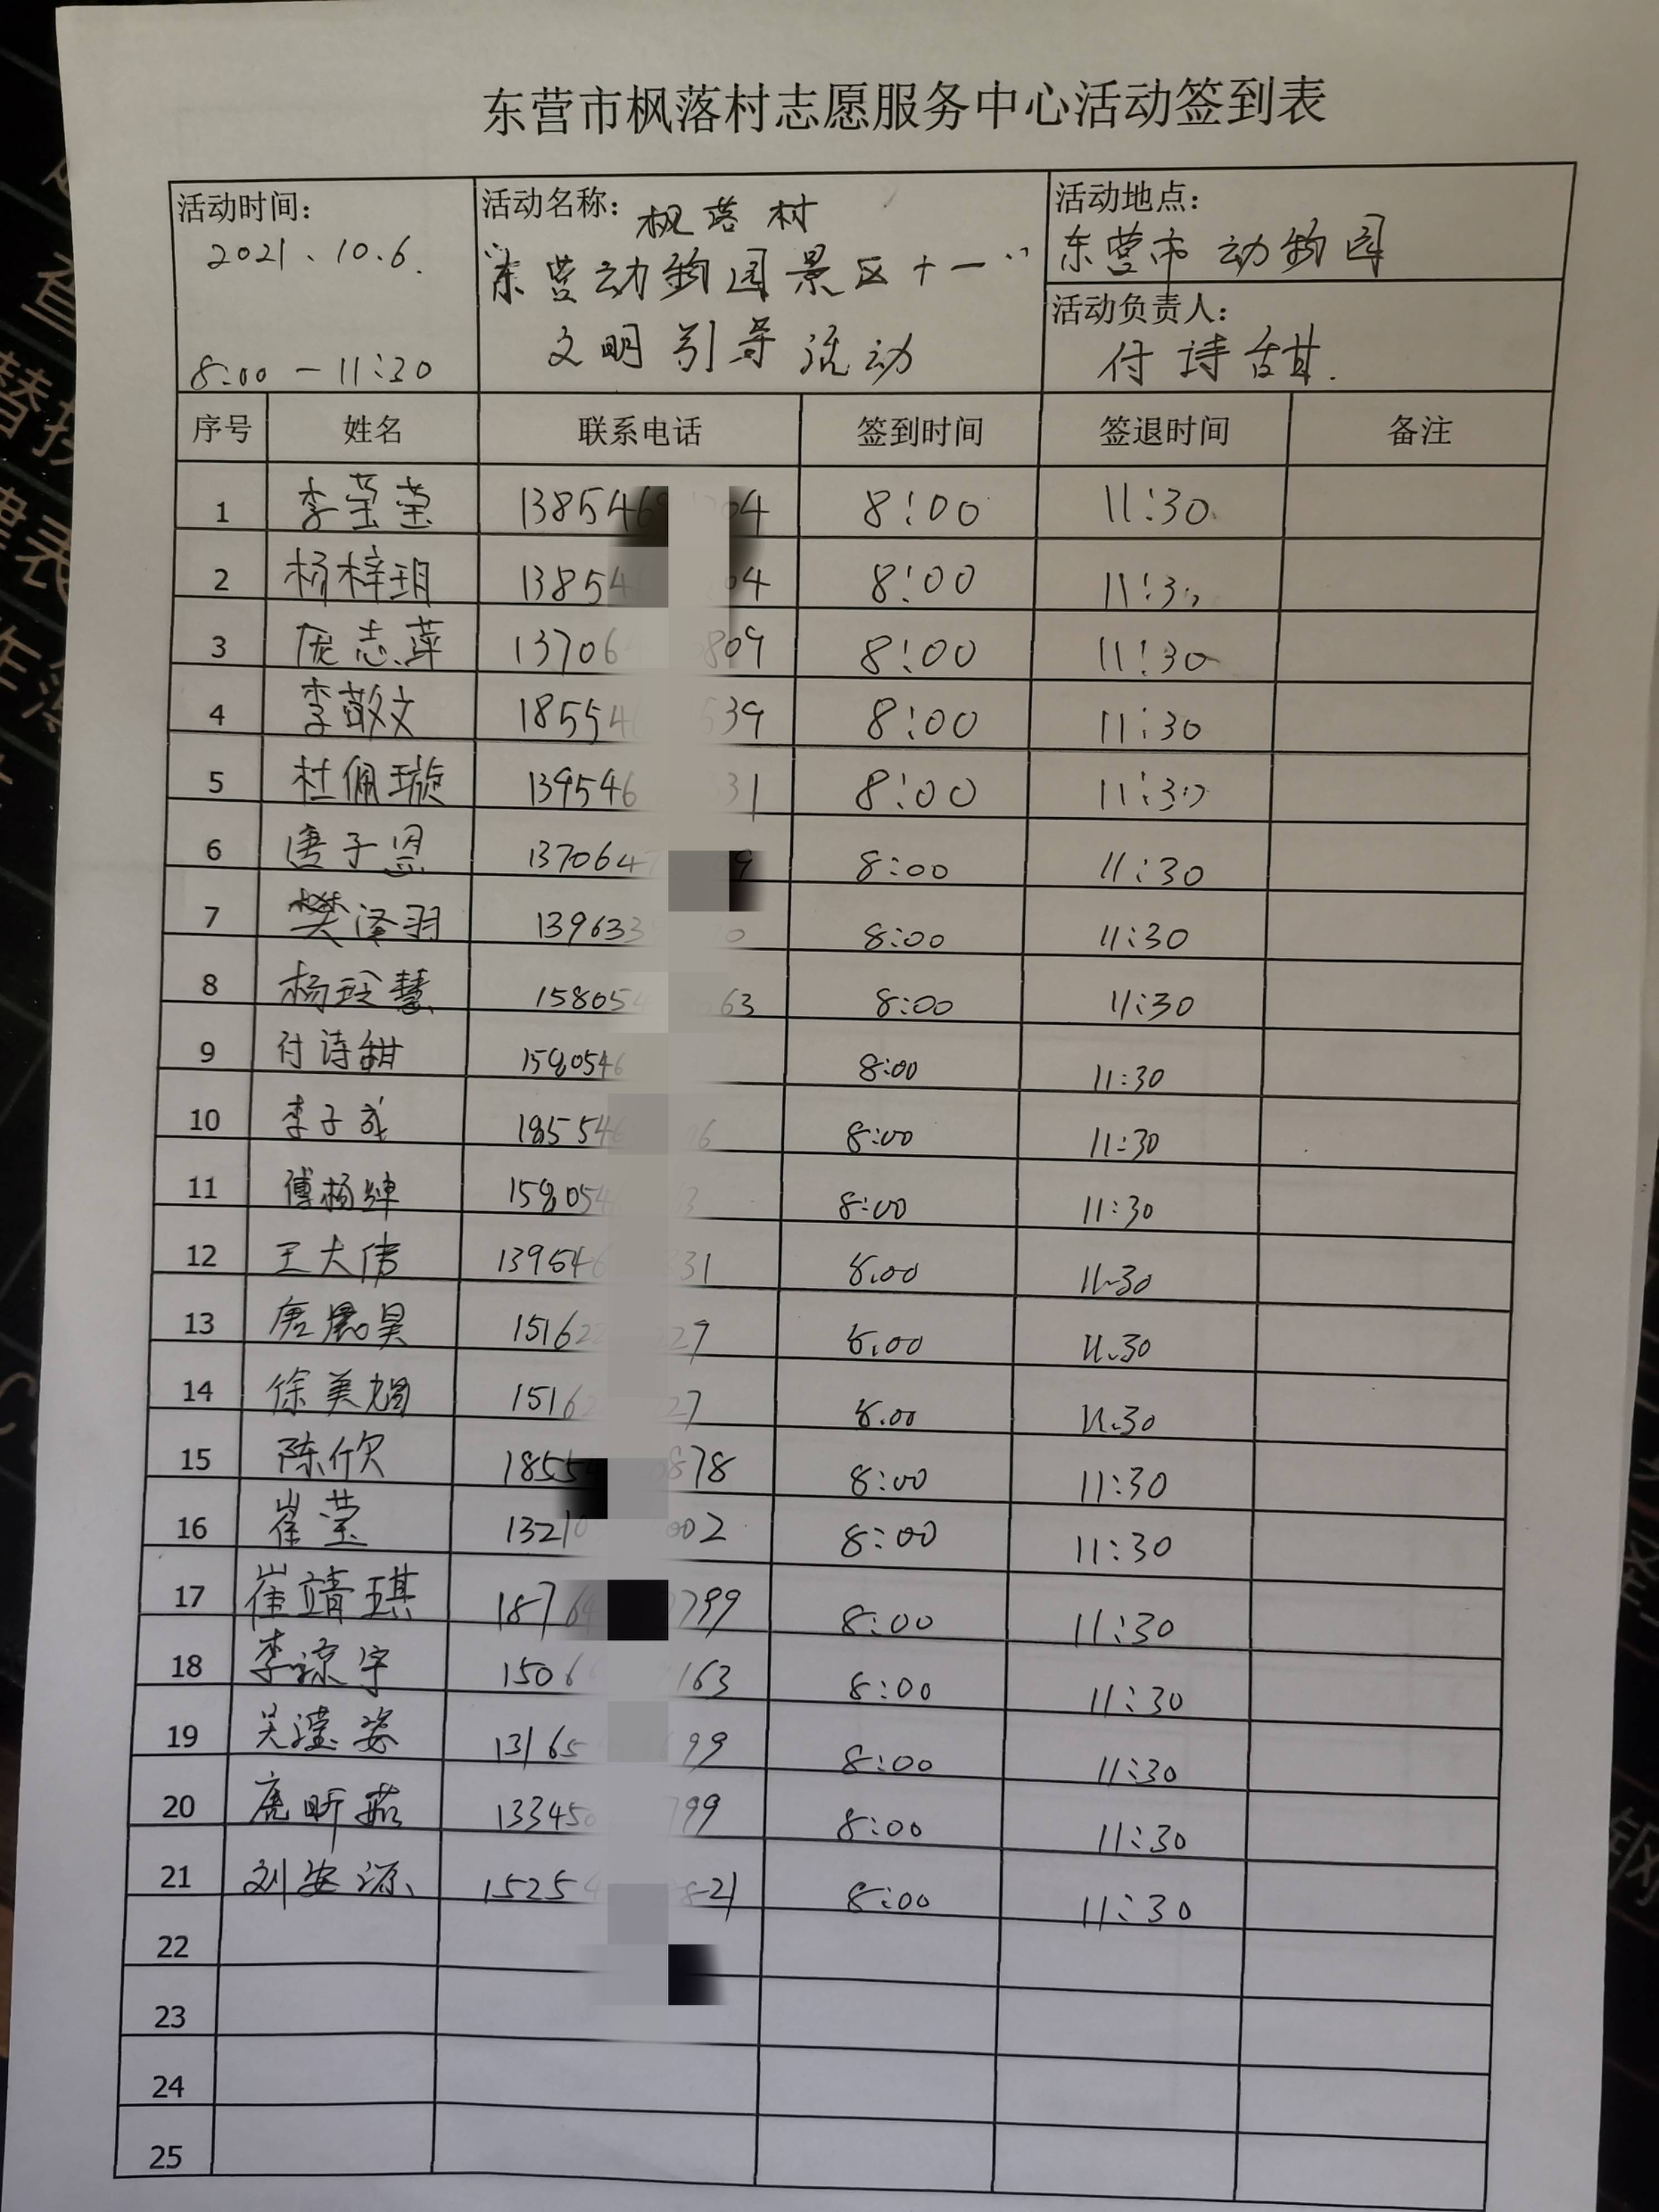 东营市枫落村志愿服务中心活动签到表
活动时间:
2021、10.6.
8:00 — 11:30
活动名称: 枫落村
“东营动物园景区十一”
文明引导活动
活动地点:
东营市动物园
活动负责人:
付诗甜.
序号 姓名 联系电话 签到时间 签退时间 备注
1 李莹莹 1385469 04 8:00 11:30
2 杨梓玥 13854 04 8:00 11:30
3 庞志萍 13706 809 8:00 11:30
4 李敬文 18554 539 8:00 11:30
5 杜佩璇 139546 31 8:00 11:30
6 唐子恩 137064 9 8:00 11:30
7 樊泽羽 139633 0 8:00 11:30
8 杨玲慧 15805 63 8:00 11:30
9 付诗甜 1580546 8:00 11:30
10 李子成 18554 6 8:00 11:30
11 傅杨婵 158054 3 8:00 11:30
12 王大伟 13954 31 8.00 11.30
13 唐晨昊 15162 27 8.00 11.30
14 徐美娟 1516 27 8.00 11.30
15 陈欣 1855 878 8:00 11:30
16 崔莹 1321 002 8:00 11:30
17 崔靖琪 1876 799 8:00 11:30
18 李谅宇 1506 163 8:00 11:30
19 吴滢姿 13165 99 8:00 11:30
20 鹿昕茹 13345 799 8:00 11:30
21 刘安源 15254 821 8:00 11:30
22
23
24
25